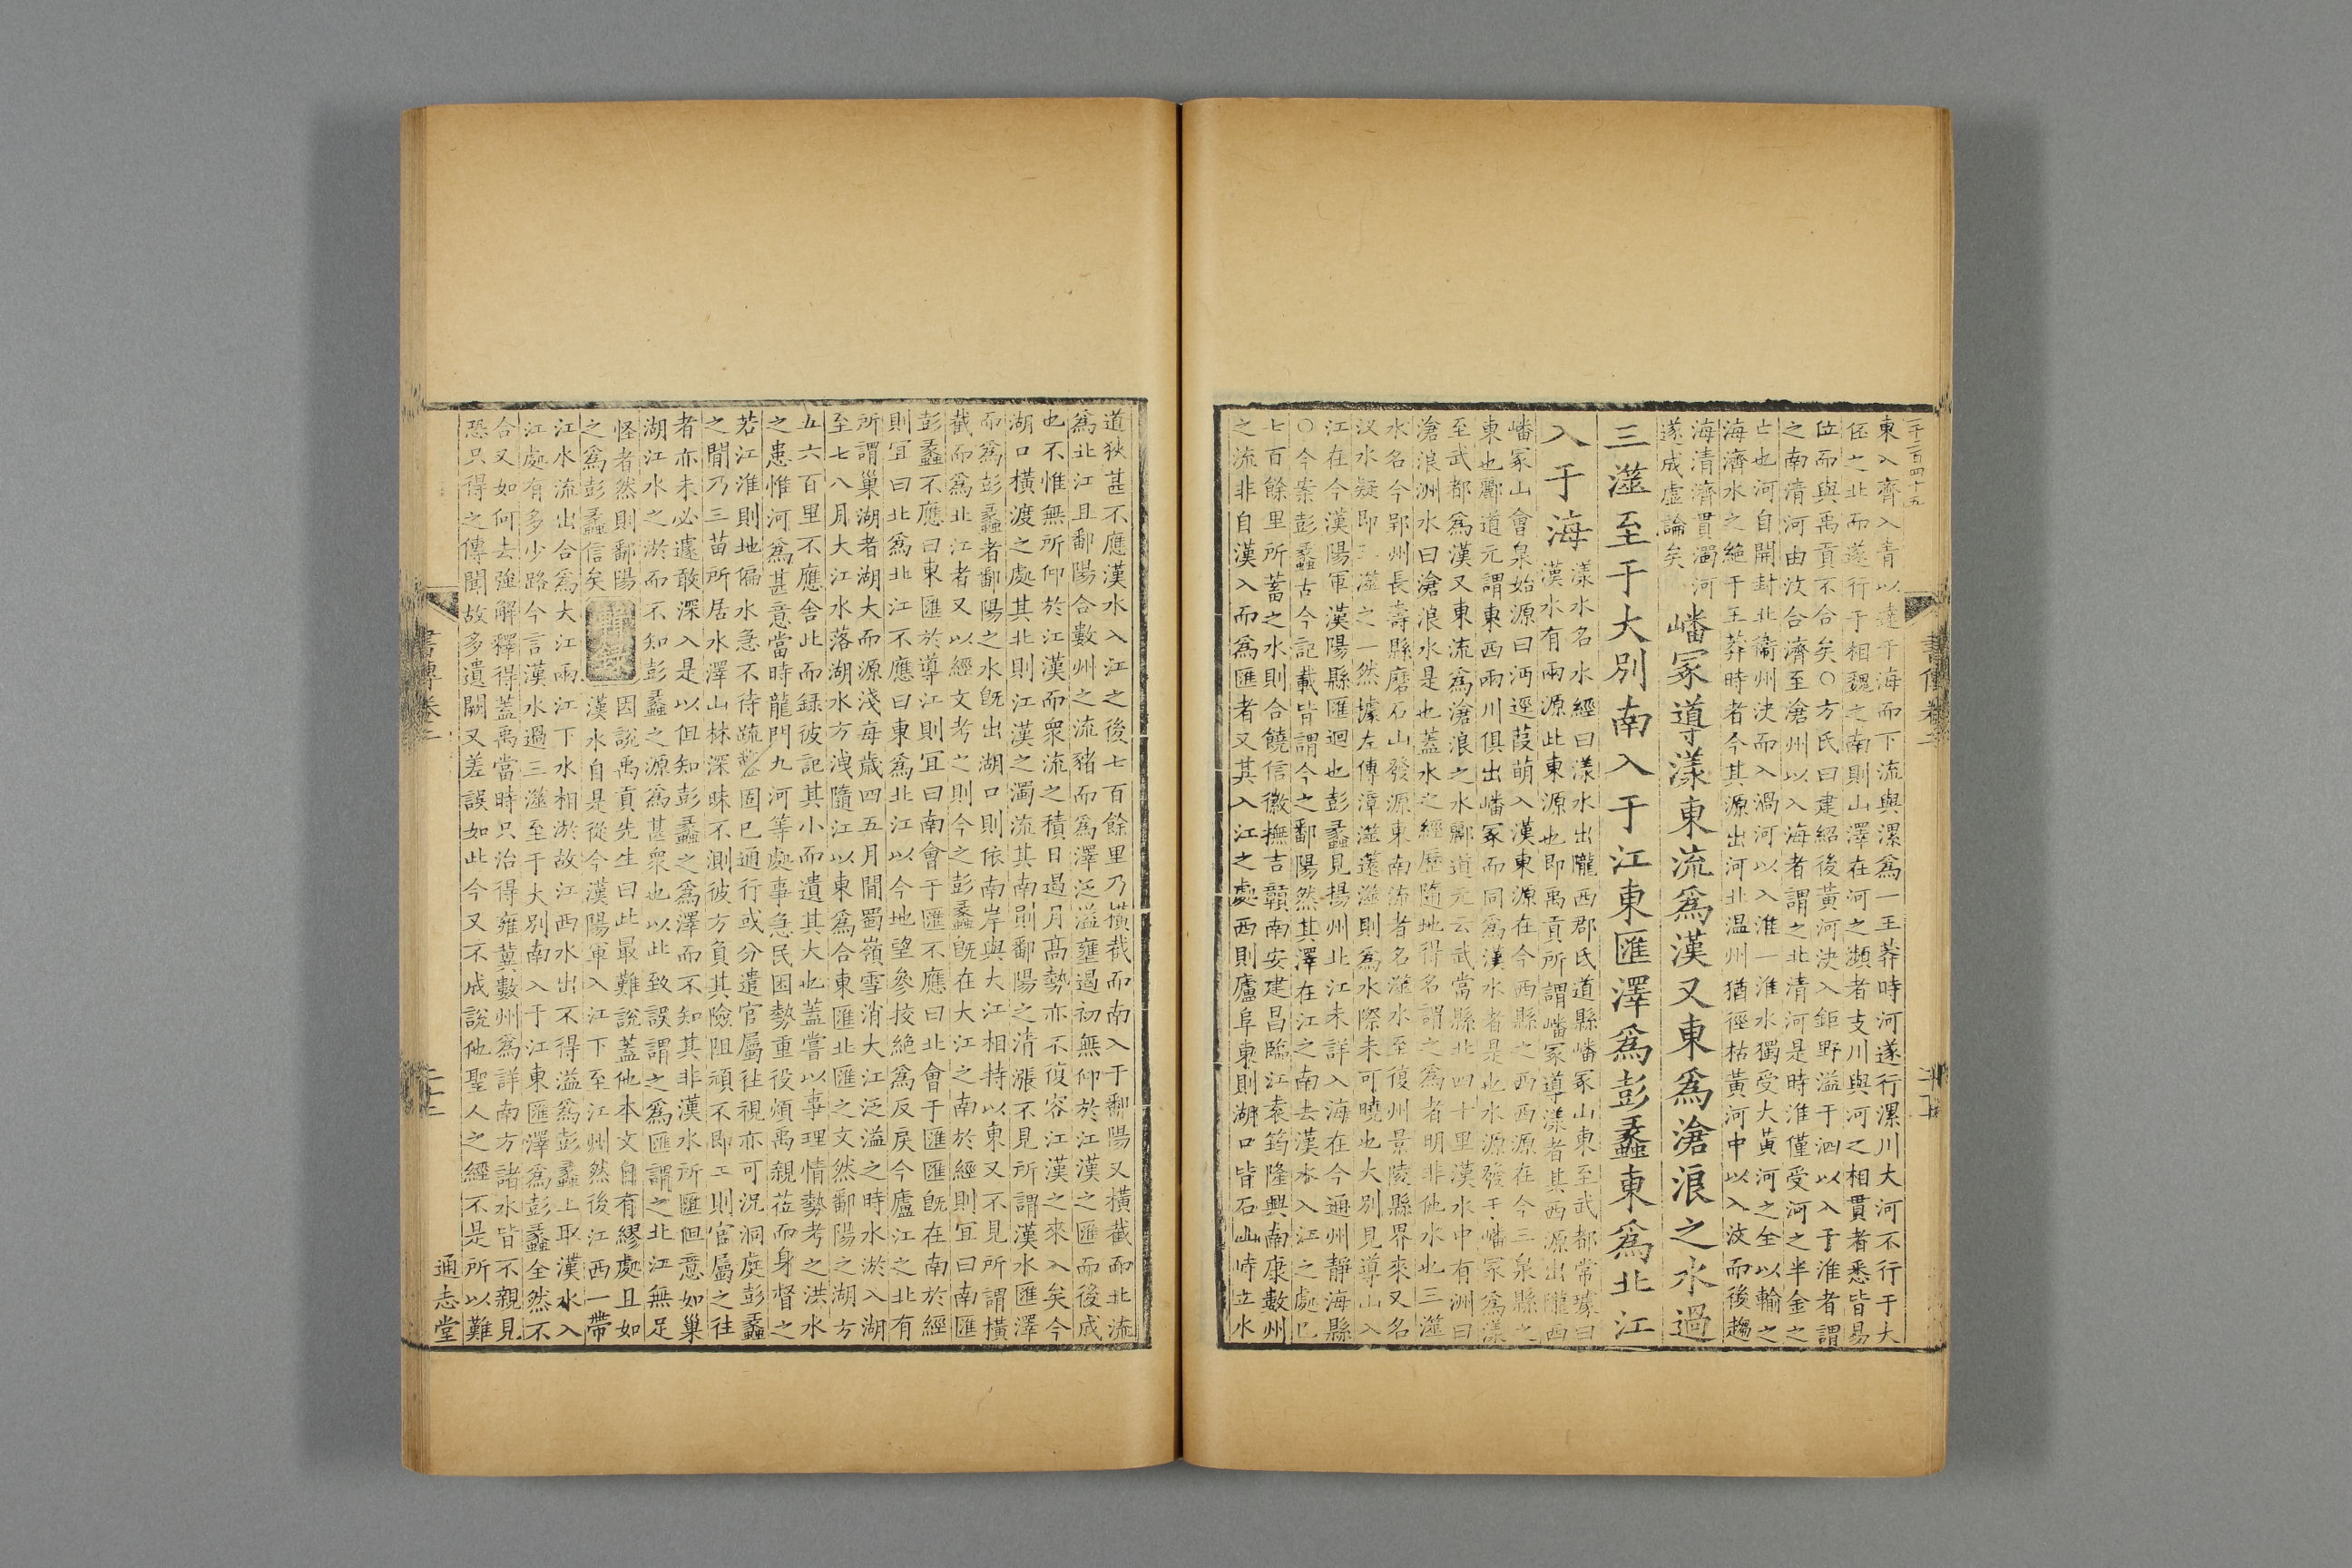 千二百四十五
東入齊入青以達于海而下流與漯爲一王莽時河遂行漯川大河不行于大
伾之北而遂行于相魏之南則山澤在河之瀕者支川與河之相貫者悉皆易
位而與禹貢不合矣○方氏曰建紹後黃河決入鉅野溢于泗以入于淮者謂
之南清河由汶合濟至滄州以入海者謂之北清河是時淮僅受河之半金之
亡也河自開封北衞州決而入渦河以入淮一淮水獨受大黃河之全以輸之
海濟水之絶于王莽時者今其源出河北温州猶徑枯黃河中以入汶而後趨
海清濟貫濁河
遂成虛論矣
嶓冢導漾東流爲漢又東爲滄浪之水過
三澨至于大別南入于江東匯澤爲彭蠡東爲北江
入于海
漾水名水經曰漾水出隴西郡氐道縣嶓冢山東至武都常璩曰
漢水有兩源此東源也即禹貢所謂嶓冢導漾者其西源出隴西
嶓冢山會泉始源曰沔逕葭萌入漢東源在今西縣之西西源在今三泉縣之
東也酈道元謂東西兩川俱出嶓冢而同爲漢水者是也水源發于嶓冢爲漾
至武都爲漢又東流爲滄浪之水酈道元云武當縣北四十里漢水中有洲曰
滄浪洲水曰滄浪水是也蓋水之經歷隨地得名謂之爲者明非他水也三澨
水名今郢州長壽縣磨石山發源東南流者名澨水至復州景陵縣界來又名
汊水疑即三澨之一然據左傳漳澨薳澨則爲水際未可曉也大別見導山入
江在今漢陽軍漢陽縣匯迴也彭蠡見揚州北江未詳入海在今通州靜海縣
○今案彭蠡古今記載皆謂今之鄱陽然其澤在江之南去漢水入江之處已
七百餘里所蓄之水則合饒信徽撫吉贛南安建昌臨江袁筠隆興南康數州
之流非自漢入而爲匯者又其入江之處西則廬阜東則湖口皆石山峙立水
道狹甚不應漢水入江之後七百餘里乃橫截而南入于鄱陽又橫截而北流
爲北江且鄱陽合數州之流豬而爲澤泛溢壅遏初無仰於江漢之匯而後成
也不惟無所仰於江漢而衆流之積日遏月高勢亦不復容江漢之來入矣今
湖口橫渡之處其北則江漢之濁流其南則鄱陽之清漲不見所謂漢水匯澤
而爲彭蠡者鄱陽之水旣出湖口則依南岸與大江相持以東又不見所謂橫
截而爲北江者又以經文考之則今之彭蠡旣在大江之南於經則宜曰南匯
彭蠡不應曰東匯於導江則宜曰南會于匯不應曰北會于匯匯旣在南於經
則宜曰北爲北江不應曰東爲北江以今地望參挍絶爲反戾今廬江之北有
所謂巢湖者湖大而源淺每歲四五月間蜀嶺雪消大江泛溢之時水淤入湖
至七八月大江水落湖水方洩隨江以東爲合東匯北匯之文然鄱陽之湖方
五六百里不應舍此而録彼記其小而遺其大也蓋嘗以事理情勢考之洪水
之患惟河爲甚意當時龍門九河等處事急民困勢重役煩禹親莅而身督之
若江淮則地偏水急不待疏鑿固已通行或分遣官屬往視亦可況洞庭彭蠡
之間乃三苗所居水澤山林深昧不測彼方負其險阻頑不即工則官屬之往
者亦未必遽敢深入是以但知彭蠡之爲澤而不知其非漢水所匯但意如巢
湖江水之淤而不知彭蠡之源爲甚衆也以此致誤謂之爲匯謂之北江無足
怪者然則鄱陽
之爲彭蠡信矣
因說禹貢先生曰此最難說蓋他本文自有繆處且如
漢水自是從今漢陽軍入江下至江州然後江西一帶
江水流出合爲大江兩江下水相淤故江西水出不得溢爲彭蠡上取漢水入
江處有多少路今言漢水過三澨至于大別南入于江東匯澤爲彭蠡全然不
合又如何去強解釋得蓋禹當時只治得雍冀數州爲詳南方諸水皆不親見
恐只得之傳聞故多遺闕又差誤如此今又不成說他聖人之經不是所以難
書傳卷二
通志堂